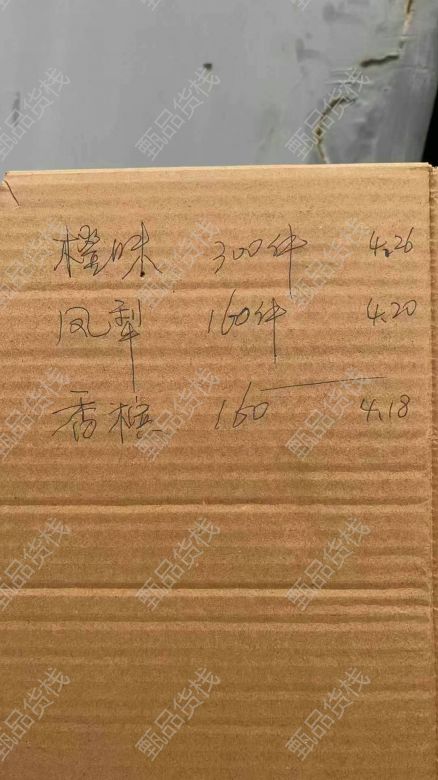 橙味 300件 4.26
凤犁 160件 4.20
香槟 160 4.18
甄品货栈